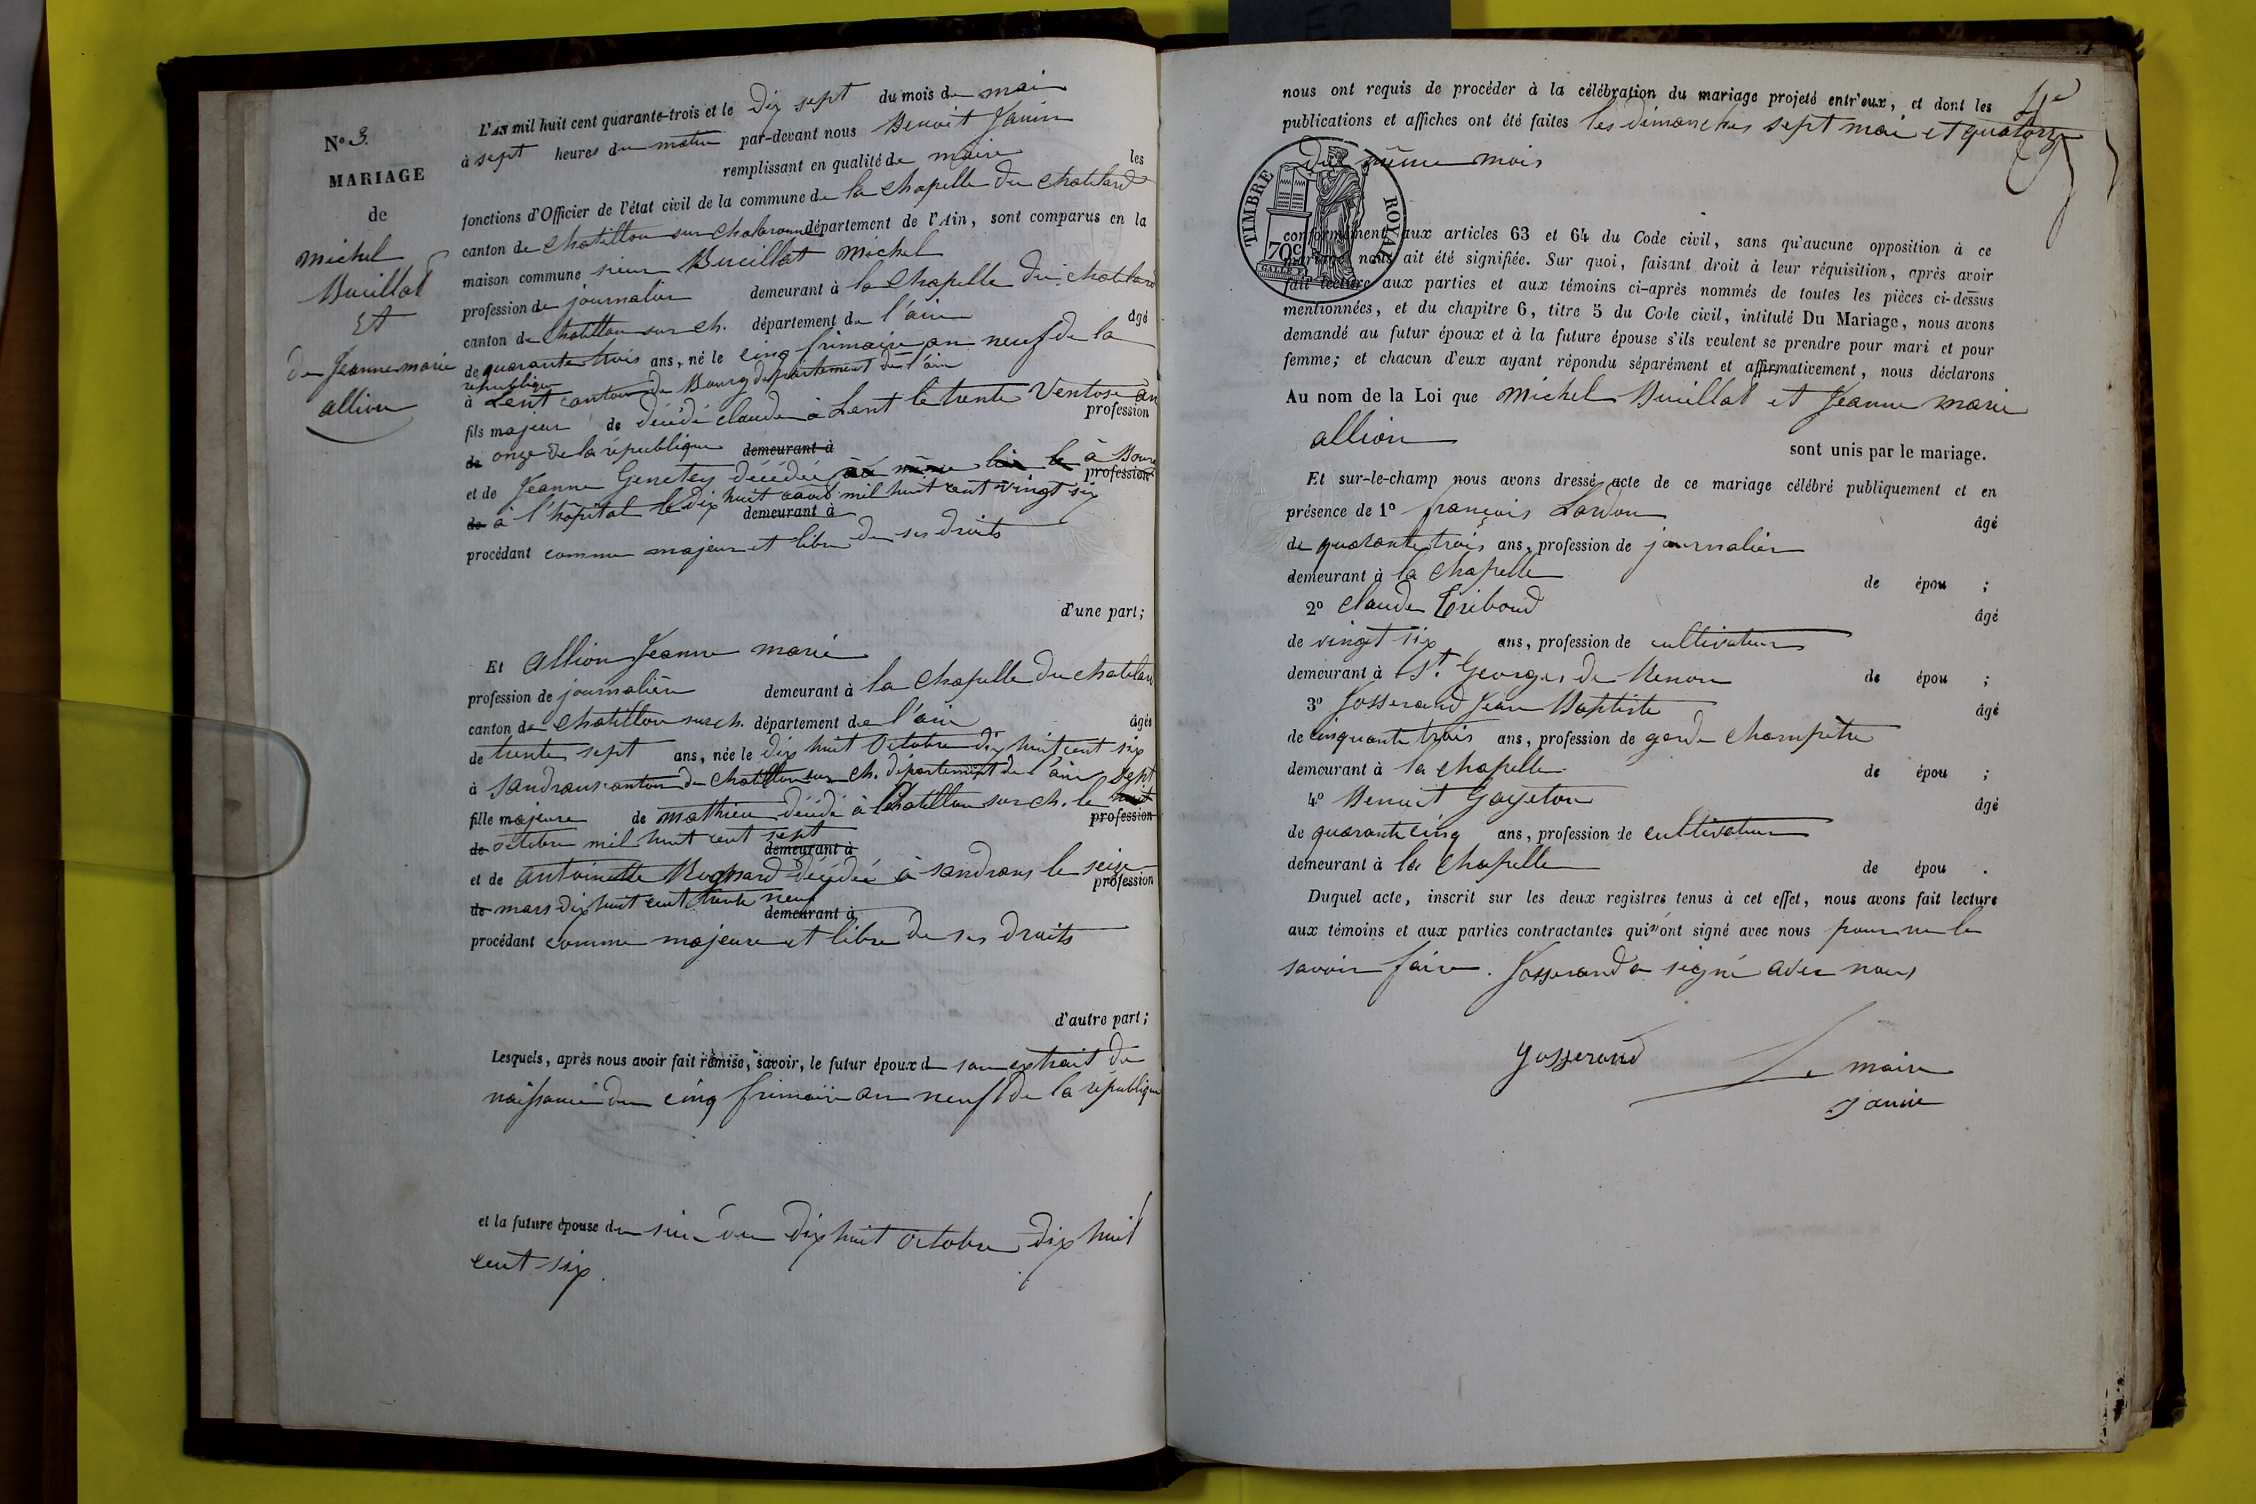 N° 3.
MARIAGE
de
Michel
Buiillat
Et
de Jeanne marie
allion
L'AN mil huit cent quarante-trois et le dix sept du mois de mai
à sept heures du matin par-devant nous Benoit Janin
remplissant en qualité de maire les
fonctions d'Officier de l'état civil de la commune de la chapelle du chatelard
canton de chatillon sur chalaronne département de l'Ain, sont comparus en la
maison commune sieur Buiillat Michel
profession de journalier demeurant à la chapelle du chatelard
canton de chatillon sur ch. département de l'ain âgé
de quarante trois ans, né le cinq frimaire an neuf de la
république
à Lent canton de Bourg département de l'ain
fils majeur de décédé claude à Lent le trente Ventose an
profession
de onze de la république demeurant à
et de Jeanne Genetey décédée au même lieu le à Bourg
profession
de à l'hôpital le dix huit mil huit cent vingt six
demeurant à
procédant comme majeur et libre de ses droits
d'une part;
Et allion Jeanne marie
profession de journalière demeurant à la chapelle du chatelard
canton de chatillon sur ch. département de l'ain âgée
de trente sept ans, née le dix huit Octobre dix huit cent six
à Sandrans canton de chatillon sur ch. département de l'ain sept
fille majeure de mathieu décédé à chatillon sur ch. le huit
profession
de octobre mil huit cent sept
demeurant à
et de antoinette décédée à sandrans le seize
profession
de mars dix huit cent trente neuf
demeurant à
procédant comme majeure et libre de ses droits
d'autre part;
Lesquels, après nous avoir fait remise, savoir, le futur époux de son extrait de
naissance du cinq frimaire an neuf de la république
et la future épouse du sien du dix huit octobre dix huit
cent six.
nous ont requis de procéder à la célébration du mariage projeté entr'eux, et dont les
publications et affiches ont été faites les dimanches sept mai et quatorze
du même mois
TIMBRE ROYAL
70c
conformément aux articles 63 et 64 du Code civil, sans qu'aucune opposition à ce
mariage nous ait été signifiée. Sur quoi, faisant droit à leur réquisition, après avoir
fait lecture aux parties et aux témoins ci-après nommés de toutes les pièces ci-dessus
mentionnées, et du chapitre 6, titre 5 du Code civil, intitulé Du Mariage, nous avons
demandé au futur époux et à la future épouse s'ils veulent se prendre pour mari et pour
femme; et chacun d'eux ayant répondu séparément et affirmativement, nous déclarons
Au nom de la Loi que Michel Buiillat et Jeanne marie
allion
sont unis par le mariage.
Et sur-le-champ nous avons dressé acte de ce mariage célébré publiquement et en
présence de 1° françois Lardon âgé
de quarante trois ans, profession de journalier
demeurant à la chapelle de épou ;
2° claude Triboud âgé
de vingt six ans, profession de cultivateur
demeurant à St. Georges de Renon de épou ;
3° Josserand Jean Baptiste âgé
de cinquante trois ans, profession de garde champêtre
demeurant à la chapelle de épou ;
4° Benoit Gayeton âgé
de quarante cinq ans, profession de cultivateur
demeurant à la chapelle de épou .
Duquel acte, inscrit sur les deux registres tenus à cet effet, nous avons fait lecture
aux témoins et aux parties contractantes qui n'ont signé avec nous pour ne le
savoir faire. Josserand a signé avec nous
Josserand
Le maire
Janin